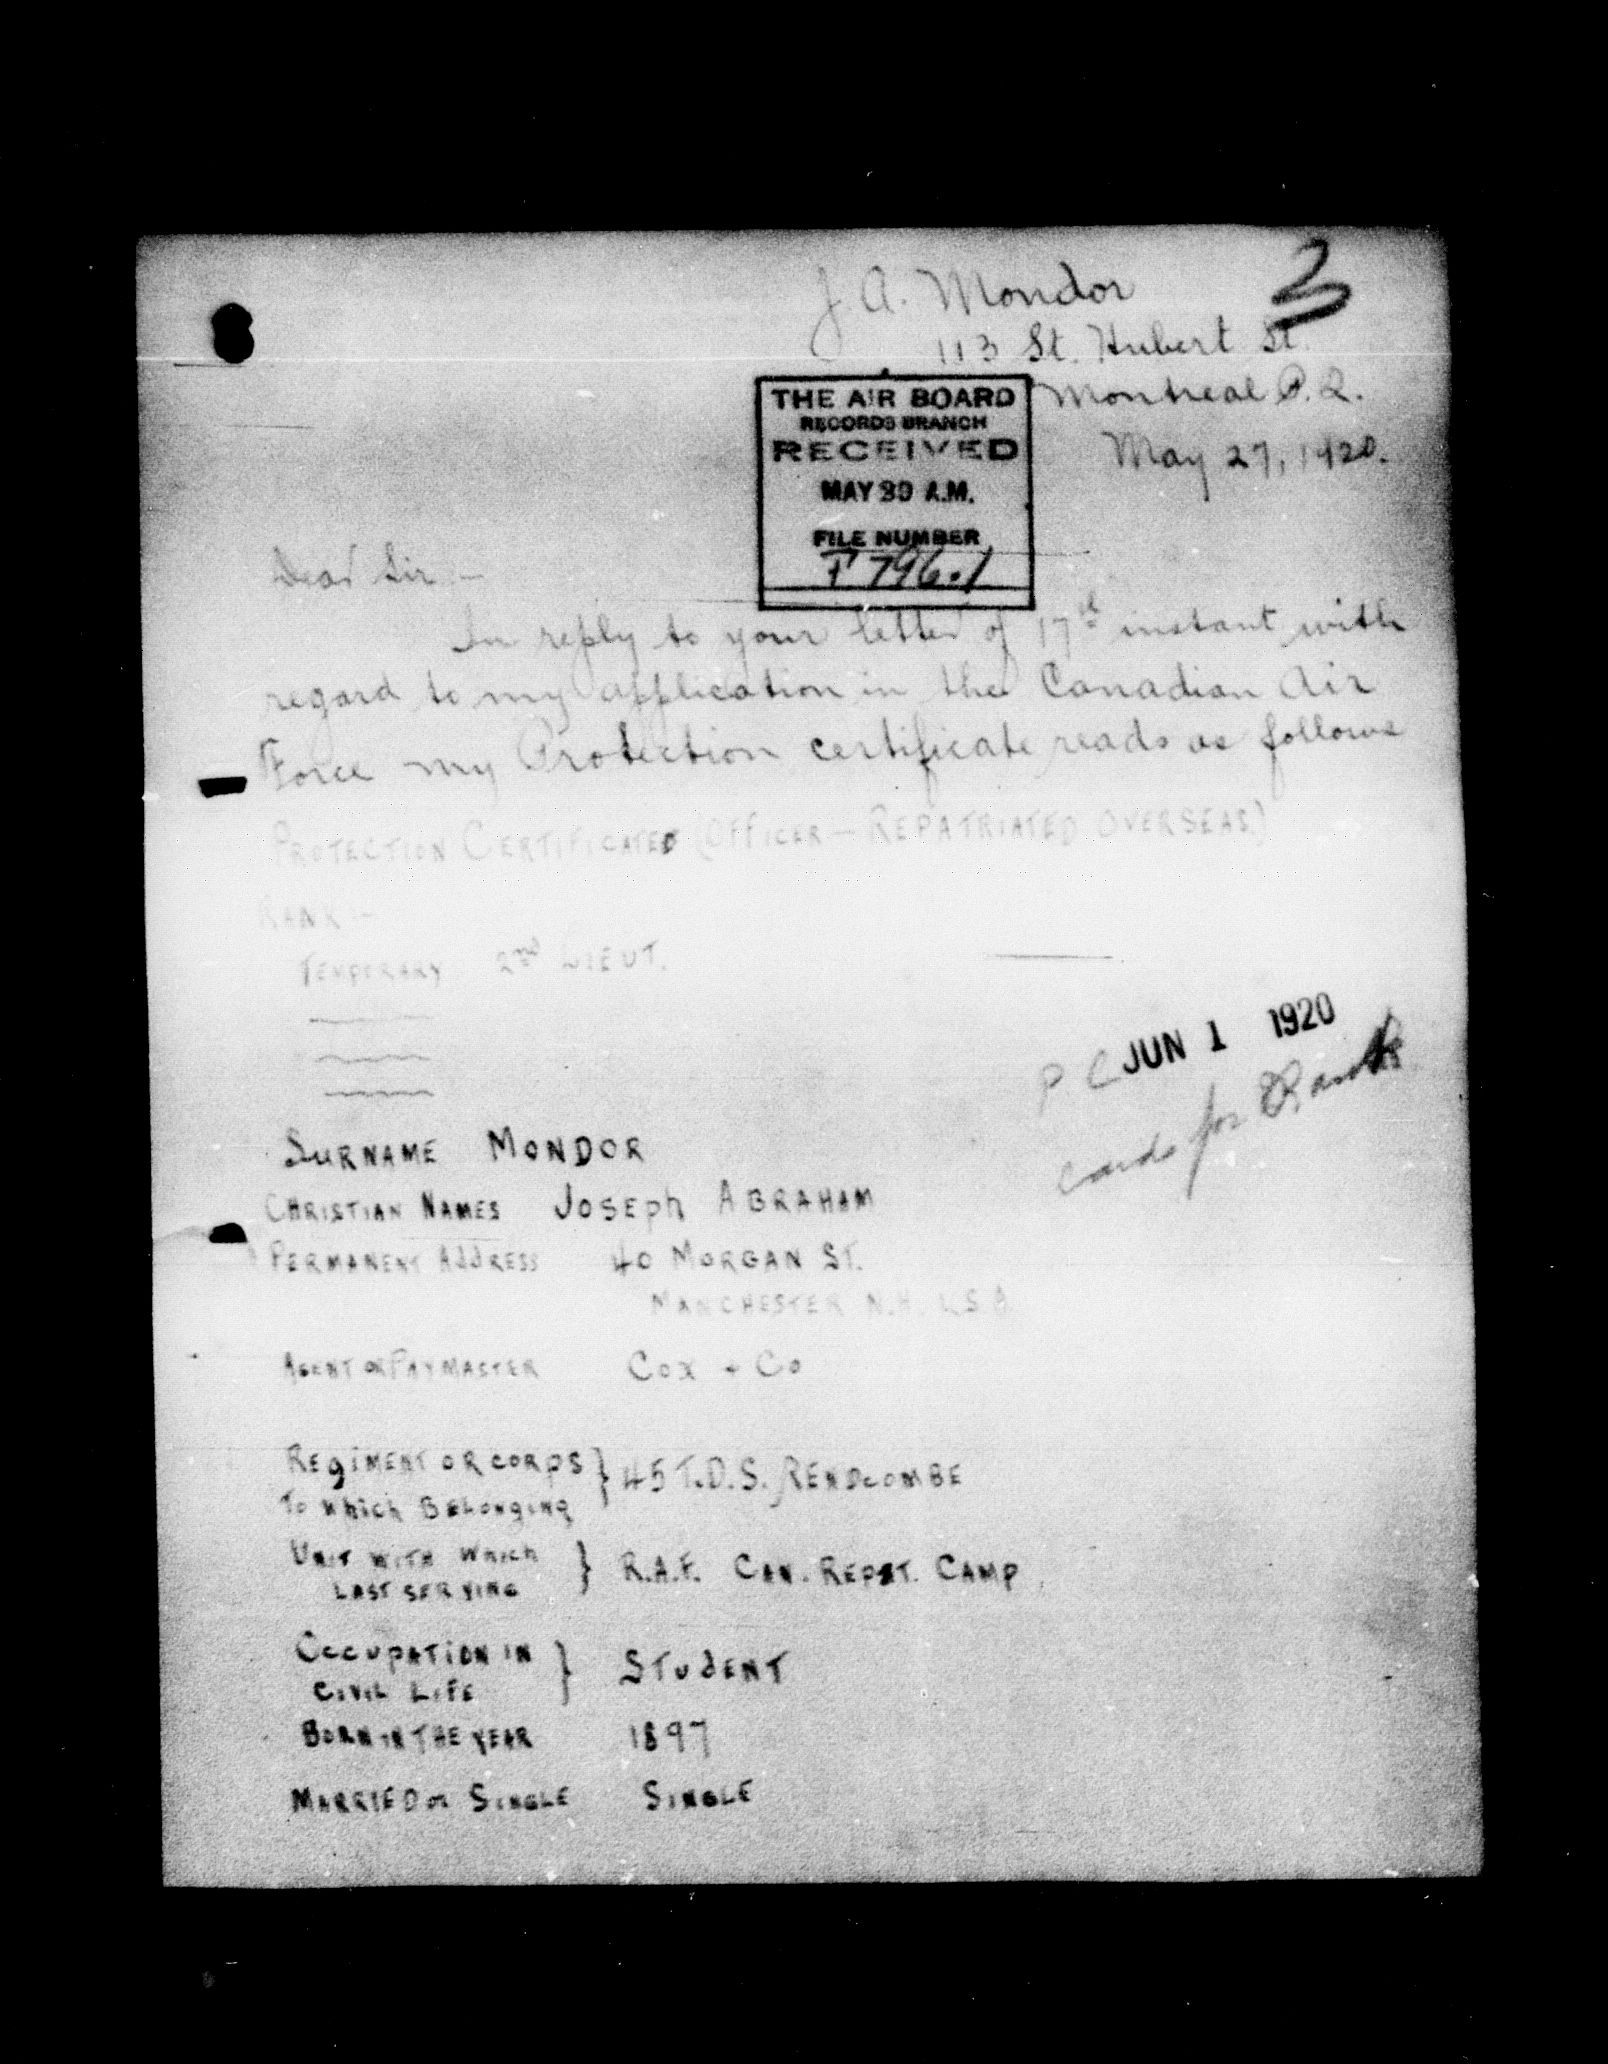 3
J. A. Mondor
113 St. Hubert St.
Montreal P.Q.
May 27, 1920.
THE AIR BOARD
RECORDS BRANCH
RECEIVED
MAY 30 A.M.
FILE NUMBER
T 796.1
Dear Sir –
In reply to your letter of 17th instant with
regard to my application in the Canadian Air
Force my Protection certificate reads as follows
PROTECTION CERTIFICATE (OFFICER – REPATRIATED OVERSEAS)
RANK :-
TEMPORARY 2nd LIEUT.
P C JUN 1 1920
cards for Rank
SURNAME MONDOR
CHRISTIAN NAMES JOSEPh ABRAHAM
PERMANENT AddRESS 40 MORGAN ST.
MANCHESTER N.H. U.S.A
AGENT OR PAYMASTER COX + CO
REgIMENT OR CORPS } 45 T.D.S. RENDCOMBE
To Which BELONGING
UNIT WITH Which } R.A.F. CAN. REPAT. CAMP
LAST SERVING
OCCUPATION IN } STUdENT
CIVIL LIFE
BORN IN THE YEAR 1897
MARRIED or SINGLE SINGLE